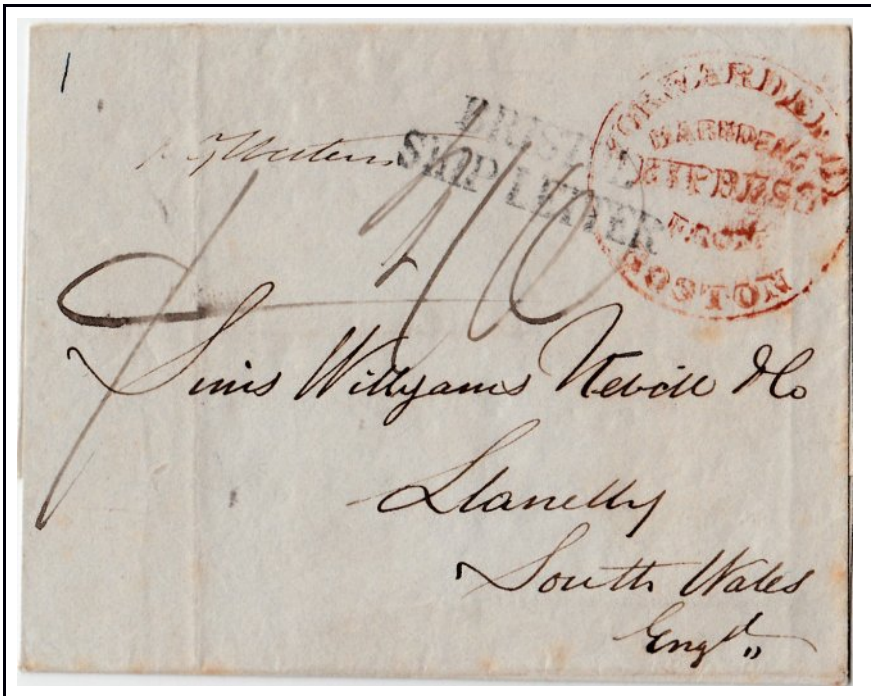 1
BRISTOL
SHIP LETTER
FORWARDED BY
HARNDEN'S
EXPRESS
FROM
BOSTON
Western
Sims Willyams Nevill & Co
Llanelly
South Wales
Engd